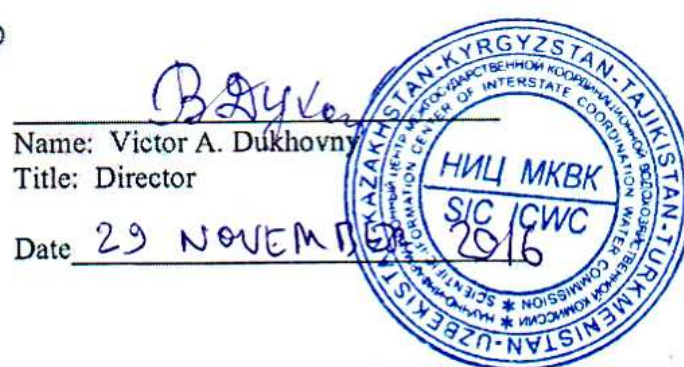 В Духов
Name: Victor A. Dukhovny
Title: Director
Date 29 NOVEMBER 2016
KAZAKHSTAN-KYRGYZSTAN-TAJIKISTAN-TURKMENISTAN-UZBEKISTAN
НАУЧНО-ИНФОРМАЦИОННЫЙ ЦЕНТР МЕЖГОСУДАРСТВЕННОЙ КООРДИНАЦИОННОЙ ВОДОХОЗЯЙСТВЕННОЙ КОМИССИИ
SCIENTIFIC INFORMATION CENTER OF INTERSTATE COORDINATION WATER COMMISSION
НИЦ МКВК
SIC ICWC